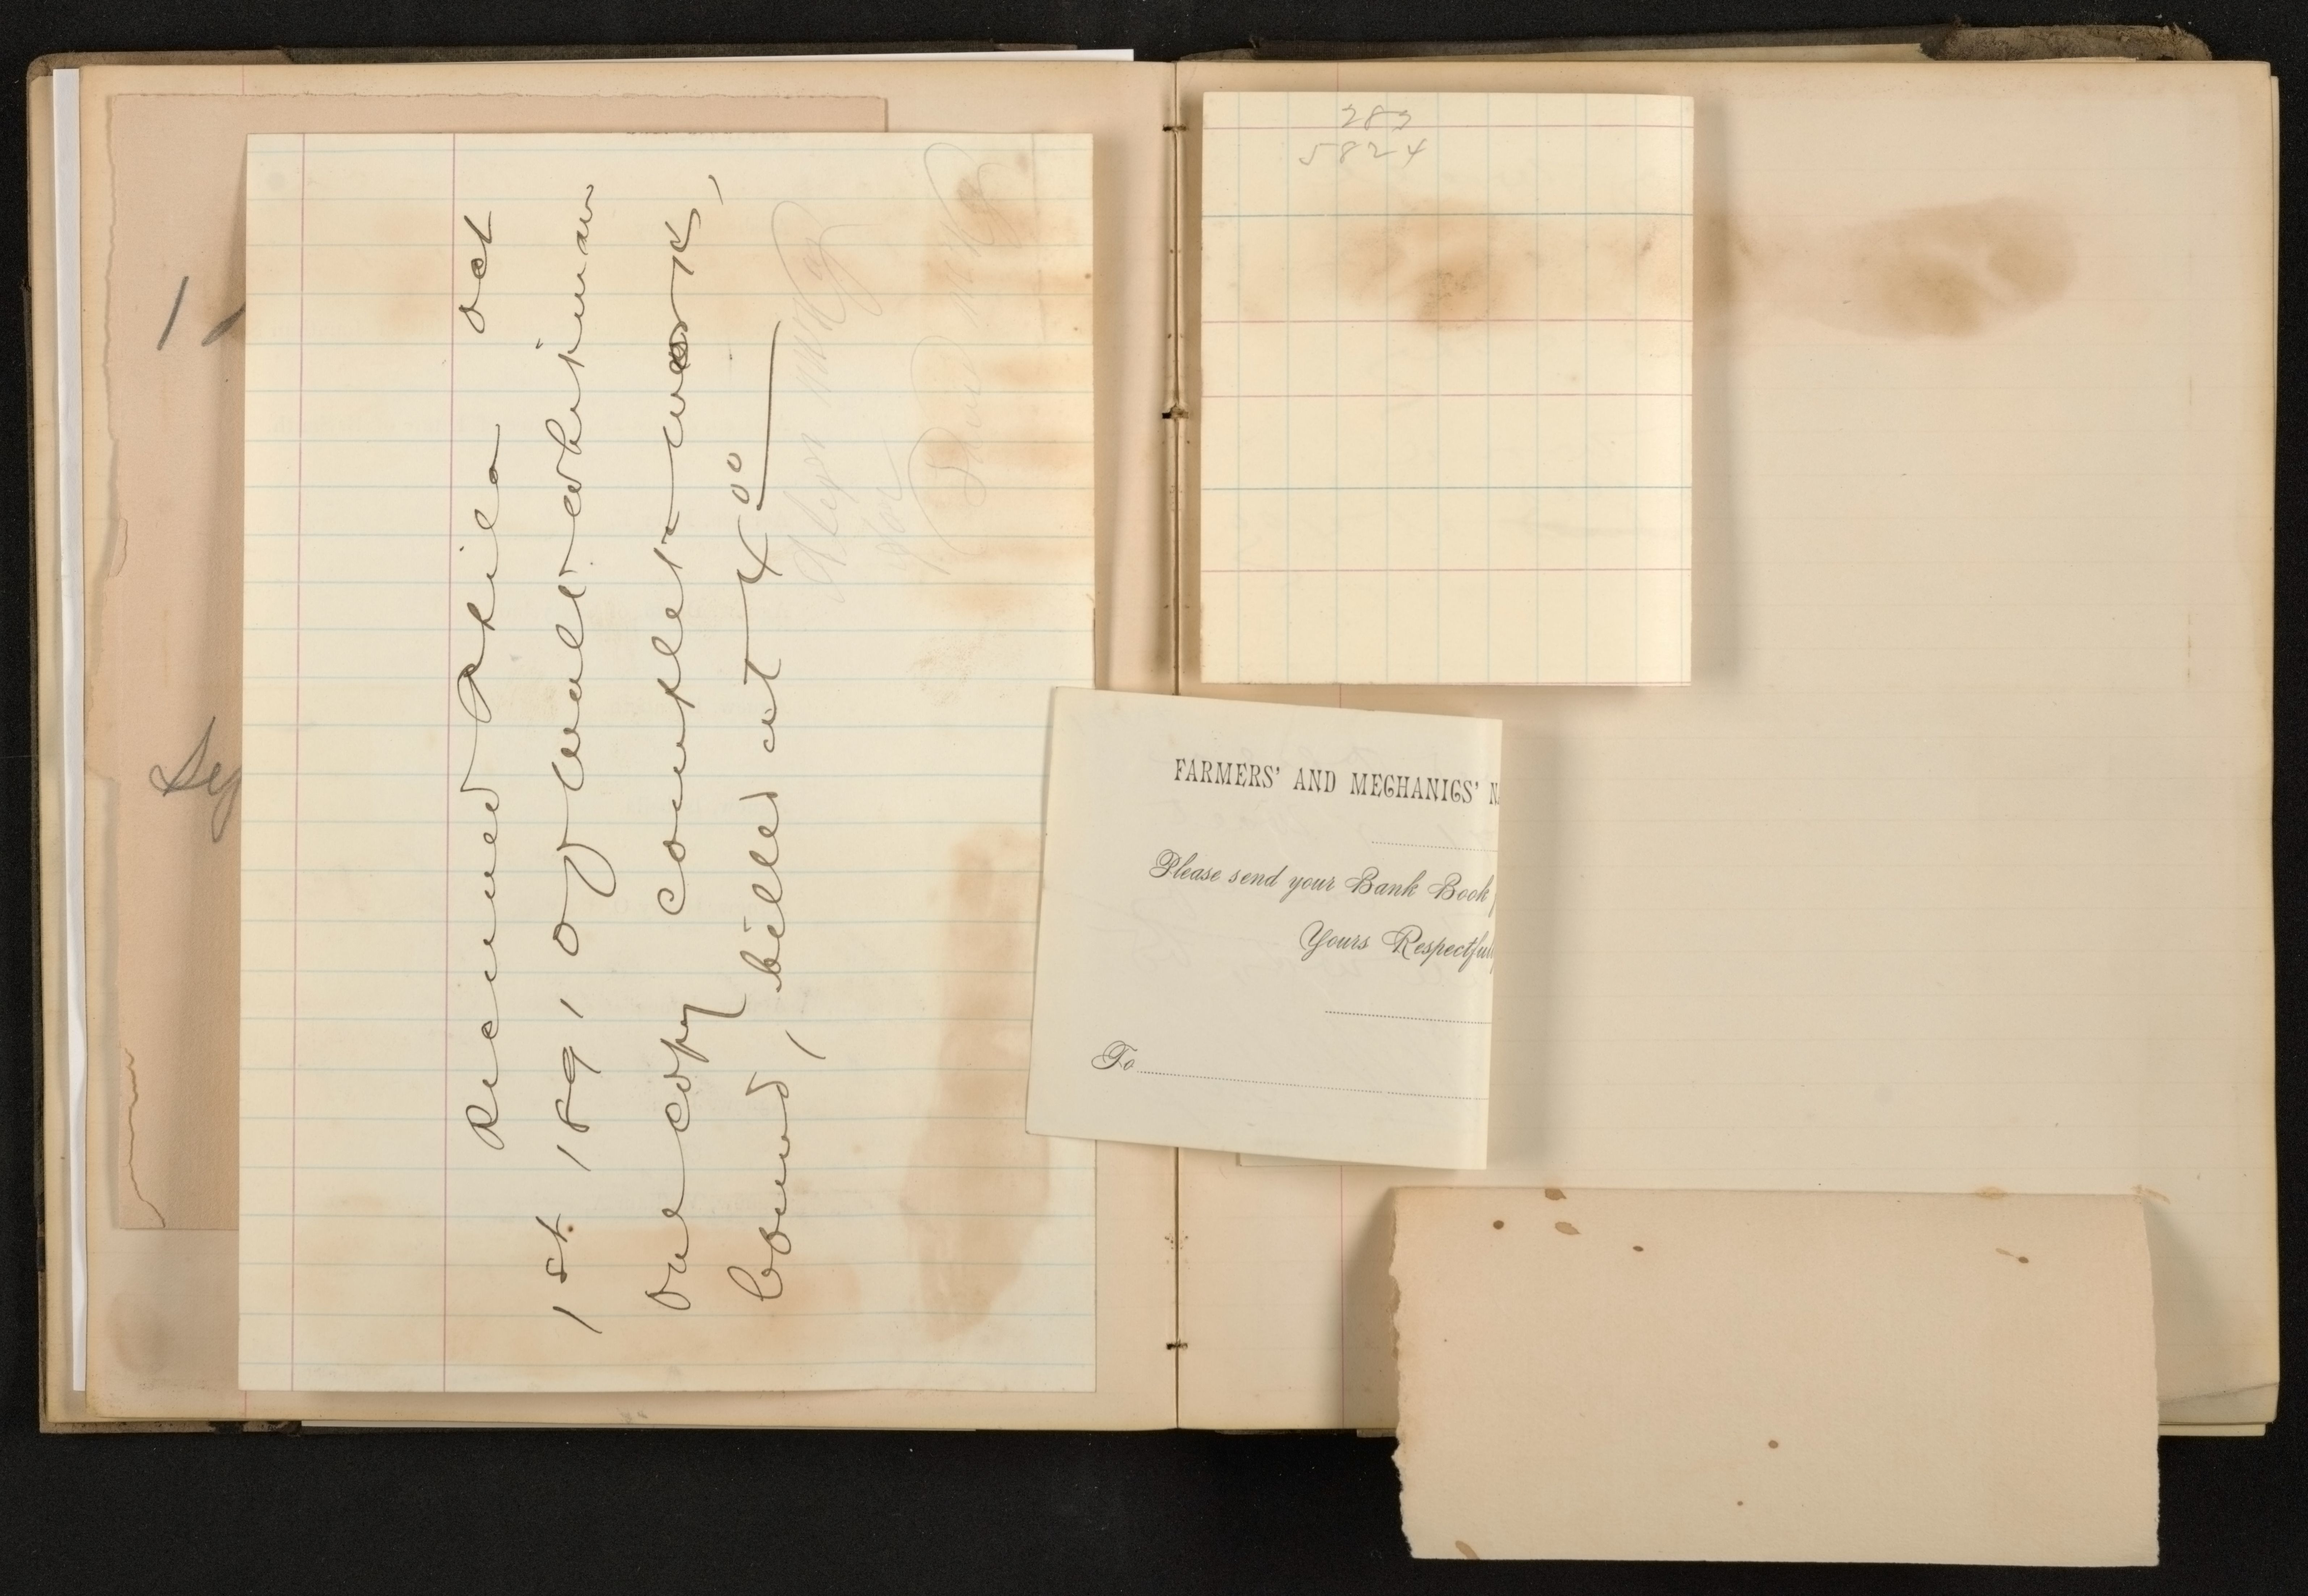 Received Phila oct
1st 1891 of Walt Whitman
one copy complete work,
bound, billed at 4 00
283
5824
FARMERS' AND MECHANICS' N
Please send your Bank Book
Yours Respectful
To